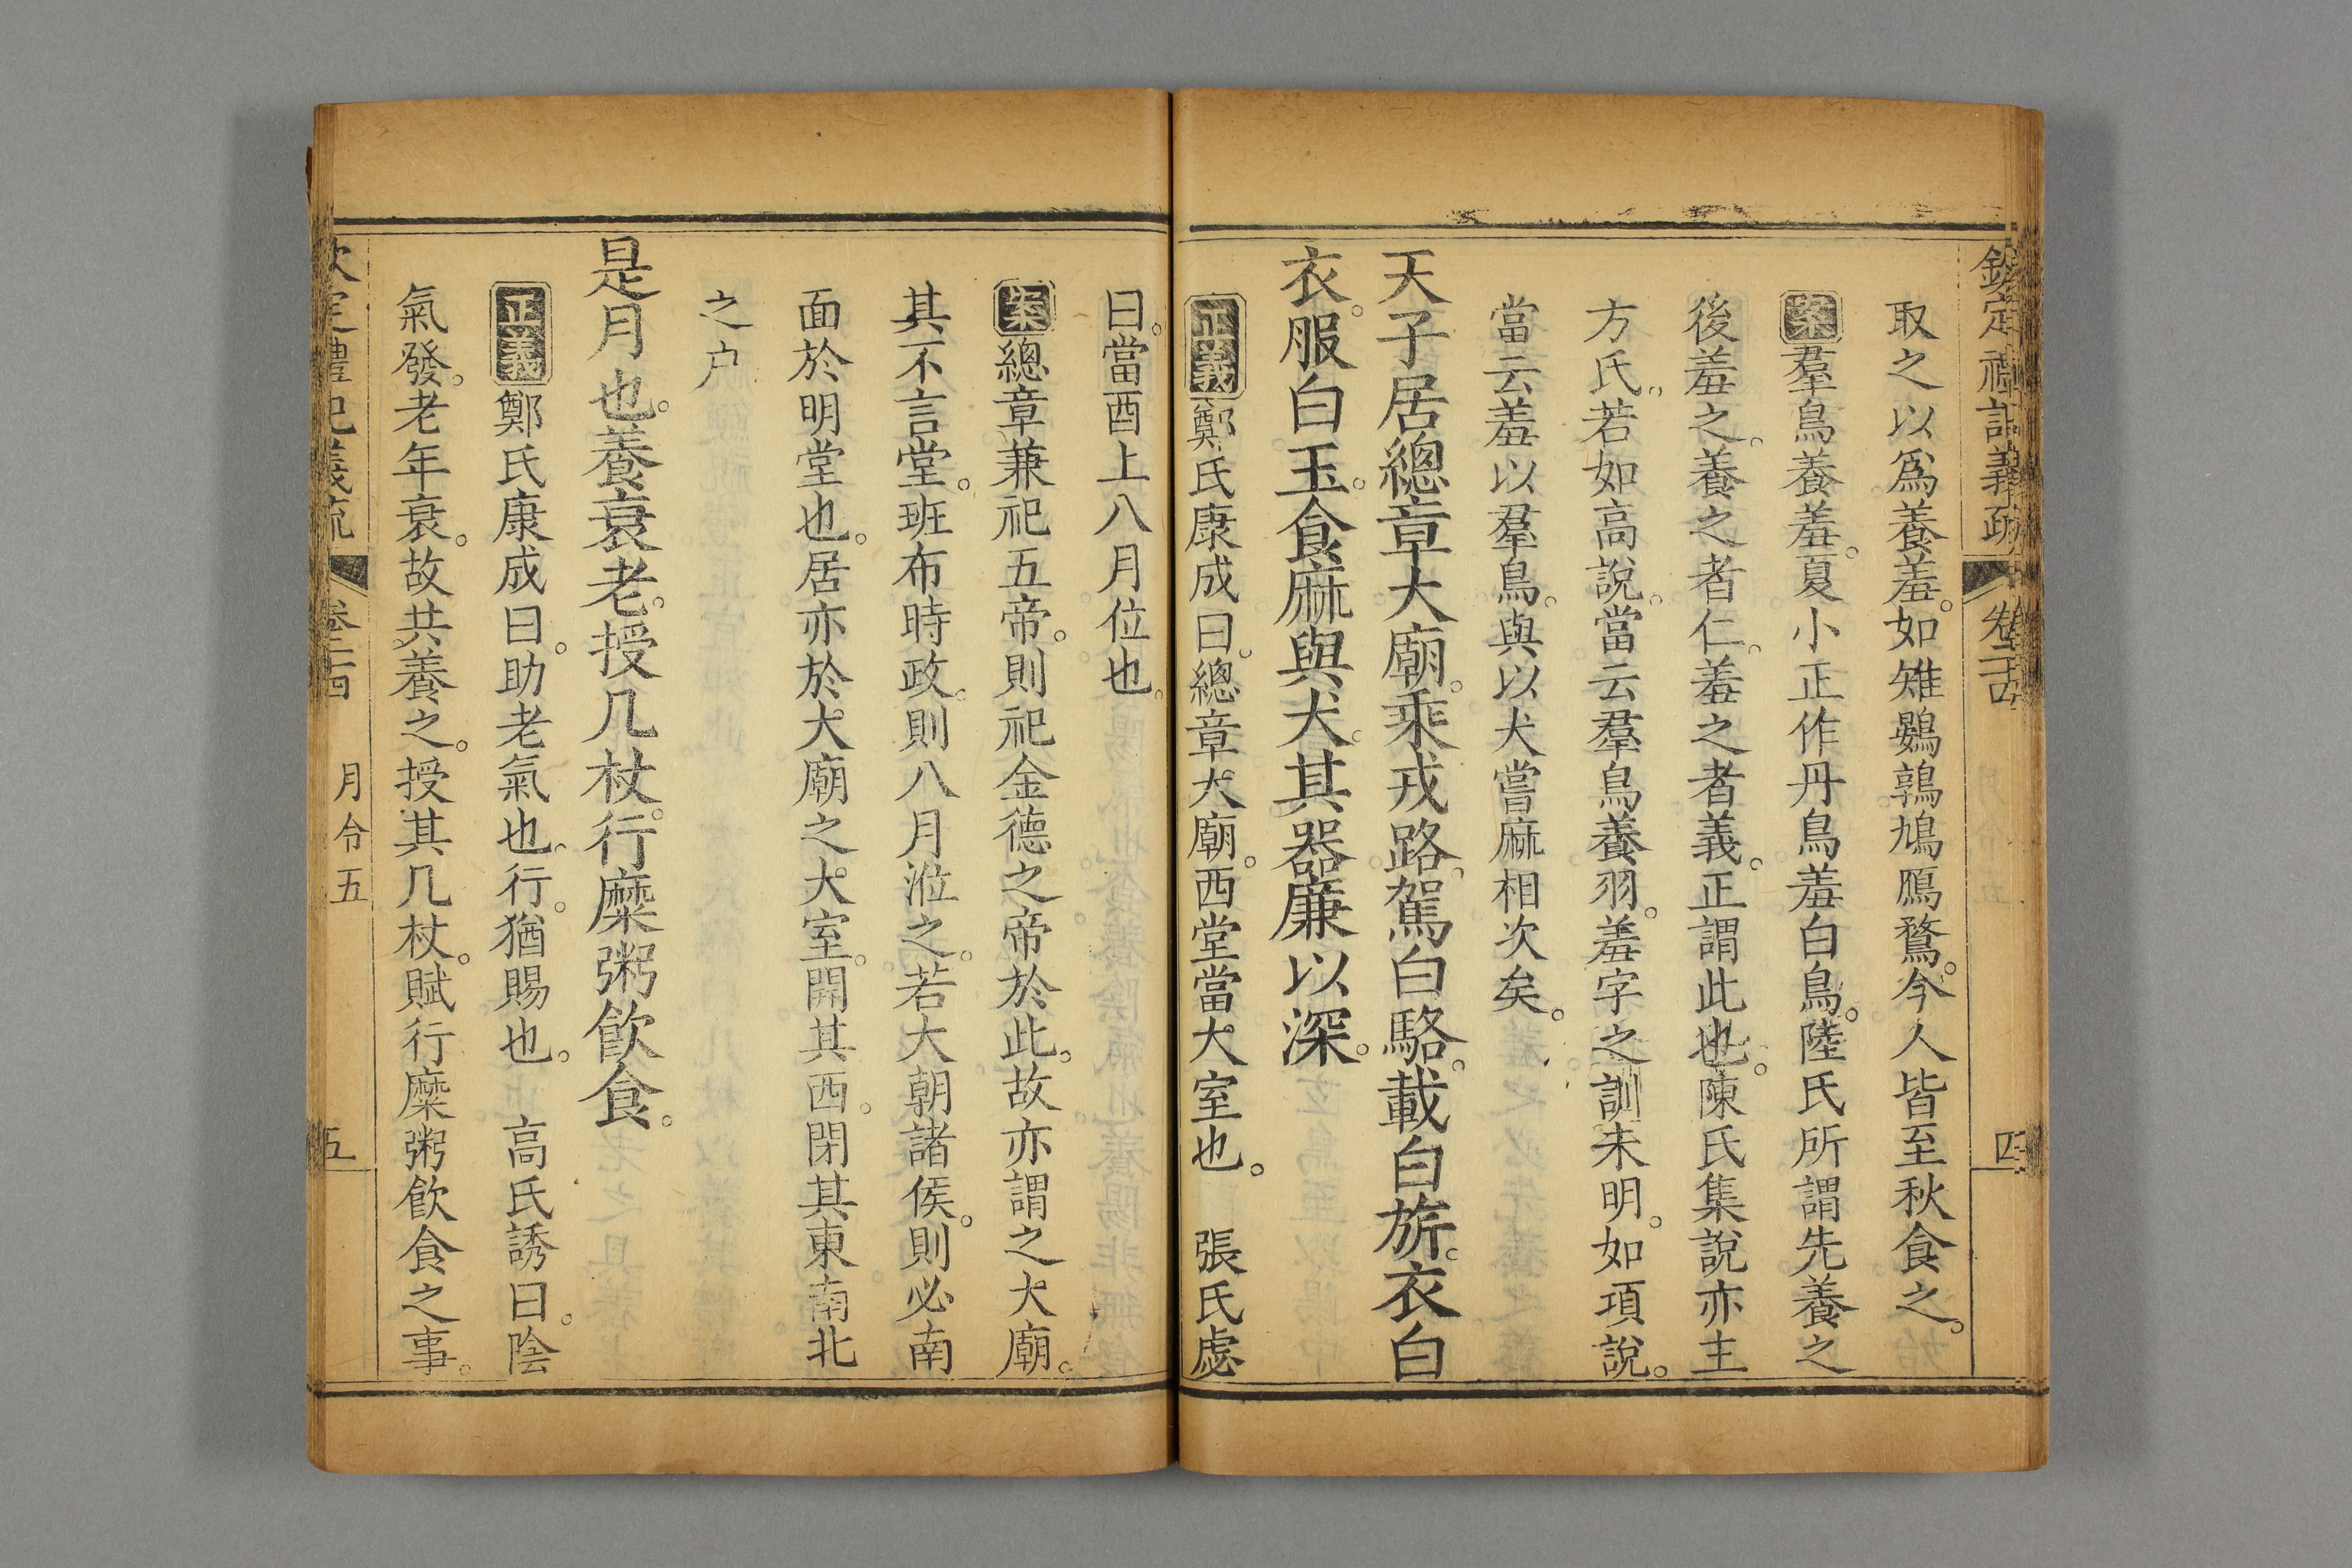 欽定禮記義疏 卷二十四 四
取之以爲養羞。如雉鷃鶉鳩鴈鶩。今人皆至秋食之。
案羣鳥養羞。夏小正作丹鳥羞白鳥。陸氏所謂先養之
後羞之。養之者仁。羞之者義。正謂此也。陳氏集說亦主
方氏。若如高說。當云羣鳥養羽。羞字之訓未明。如項說。
當云羞以羣鳥。與以犬嘗麻相次矣。
天子居總章大廟。乘戎路。駕白駱。載白旂。衣白
衣。服白玉。食麻與犬。其器廉以深。
正義鄭氏康成曰。總章大廟。西堂當大室也。 張氏虙
曰。當酉上八月位也。
案總章兼祀五帝。則祀金德之帝於此。故亦謂之大廟。
其不言堂。班布時政。則八月涖之。若大朝諸侯。則必南
面於明堂也。居亦於大廟之大室。開其西。閉其東南北
之户
是月也。養衰老。授几杖。行糜粥飲食。
正義鄭氏康成曰。助老氣也。行。猶賜也。 高氏誘曰。陰
氣發。老年衰。故共養之。授其几杖。賦行糜粥飲食之事。
欽定禮記義疏 卷二十四 月令五 五